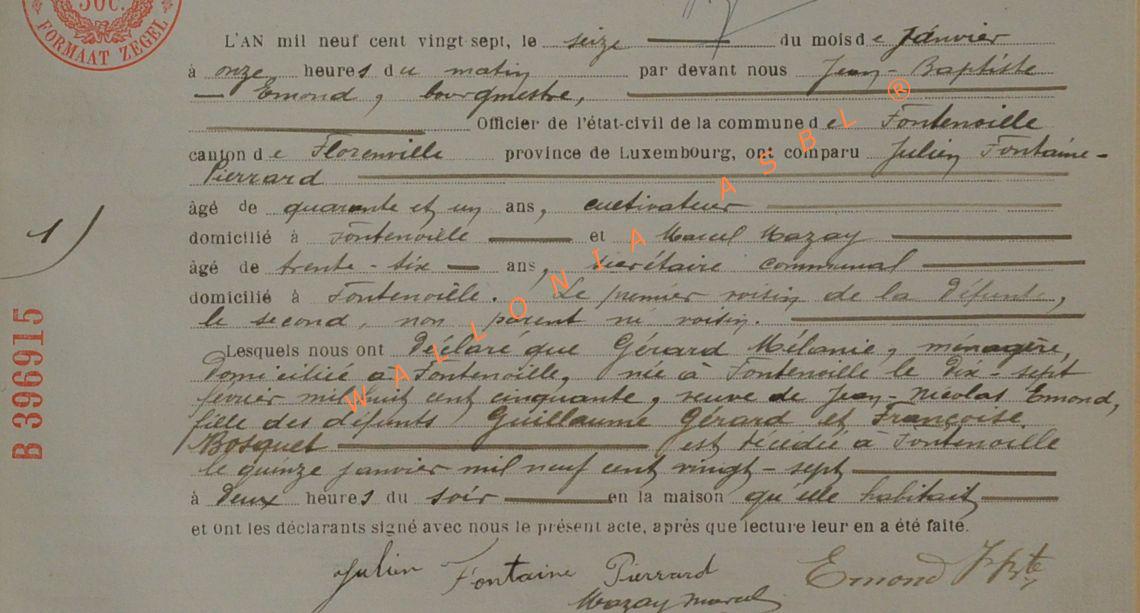 50C.
FORMAAT ZEGEL
L'AN mil neuf cent vingt-sept, le seize du mois de Janvier
à onze heures du matin par devant nous Jean-Baptiste
Emond, bourgmestre,
Officier de l'état-civil de la commune de Fontenoille
canton de Florenville province de Luxembourg, ont comparu Julien Fontaine-
Pierrard
âgé de quarante et un ans, cultivateur
domicilié à Fontenoille et Marcel Mazay
âgé de trente-six ans, secrétaire communal
domicilié à Fontenoille. Le premier voisin de la défunte,
le second, non parent ni voisin.
Lesquels nous ont déclaré que Gérard Mélanie, ménagère,
domiciliée à Fontenoille, née à Fontenoille le dix-sept
février mil huit cent cinquante, veuve de Jean-Nicolas Emond,
fille des défunts Guillaume Gérard et Françoise
Bosquet est décédée à Fontenoille
le quinze janvier mil neuf cent vingt-sept
à deux heures du soir en la maison qu'elle habitait
et ont les déclarants signé avec nous le présent acte, après que lecture leur en a été faite.
Julien Fontaine Pierrard Emond
Mazay Marcel
1)
B 396915
WALLONIA ASBL ®